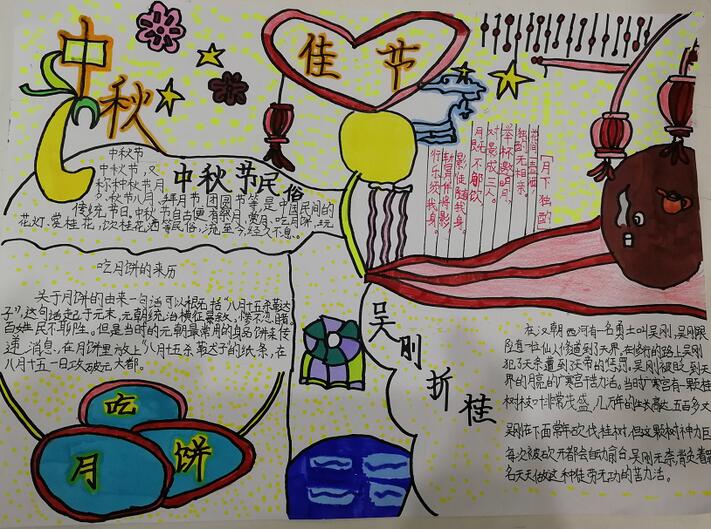 中秋
佳节
中秋节民俗
中秋节
中秋节,又
称仲秋节月
夕,秋节,八月,拜月节,团圆节等,是中国民间的
传统节日。中秋节自古便有祭月、赏月、吃月饼、玩
花灯、赏桂花、饮桂花酒等民俗,流至今,经久不息。
《月下独酌》
花间一壶酒
独酌无相亲
举杯邀明月,
对影成三人。
月既不解饮
影徒随我身。
暂伴月将影
行乐须
吃月饼的来历
关于月饼的由来一句话可以概括"八月十五杀鞑
子",这句话起于元末,元朝统治
百姓民不聊生。但是当时的元朝最常用的食品饼来传
递消息,在月饼里放上"八月十五杀鞑子"的纸条,在
八月十五一日攻破元大都。
吃
月
饼
吴刚折桂
在汉朝西河有一名勇士叫吴刚,吴刚跟
随一位仙人修道到了天界,在修行的路上吴刚
犯了天条遭到天帝的惩罚。吴刚被贬到天
界的月亮的广寒宫干苦力活。当时广寒宫有一颗桂
树枝叶非常茂盛,几万年的生长高达五百多丈
吴刚在下面常年砍伐桂树,但这颗树神力巨
每次被砍下都会自动愈合,吴刚无奈
名天天做这种徒劳无功的苦力活。